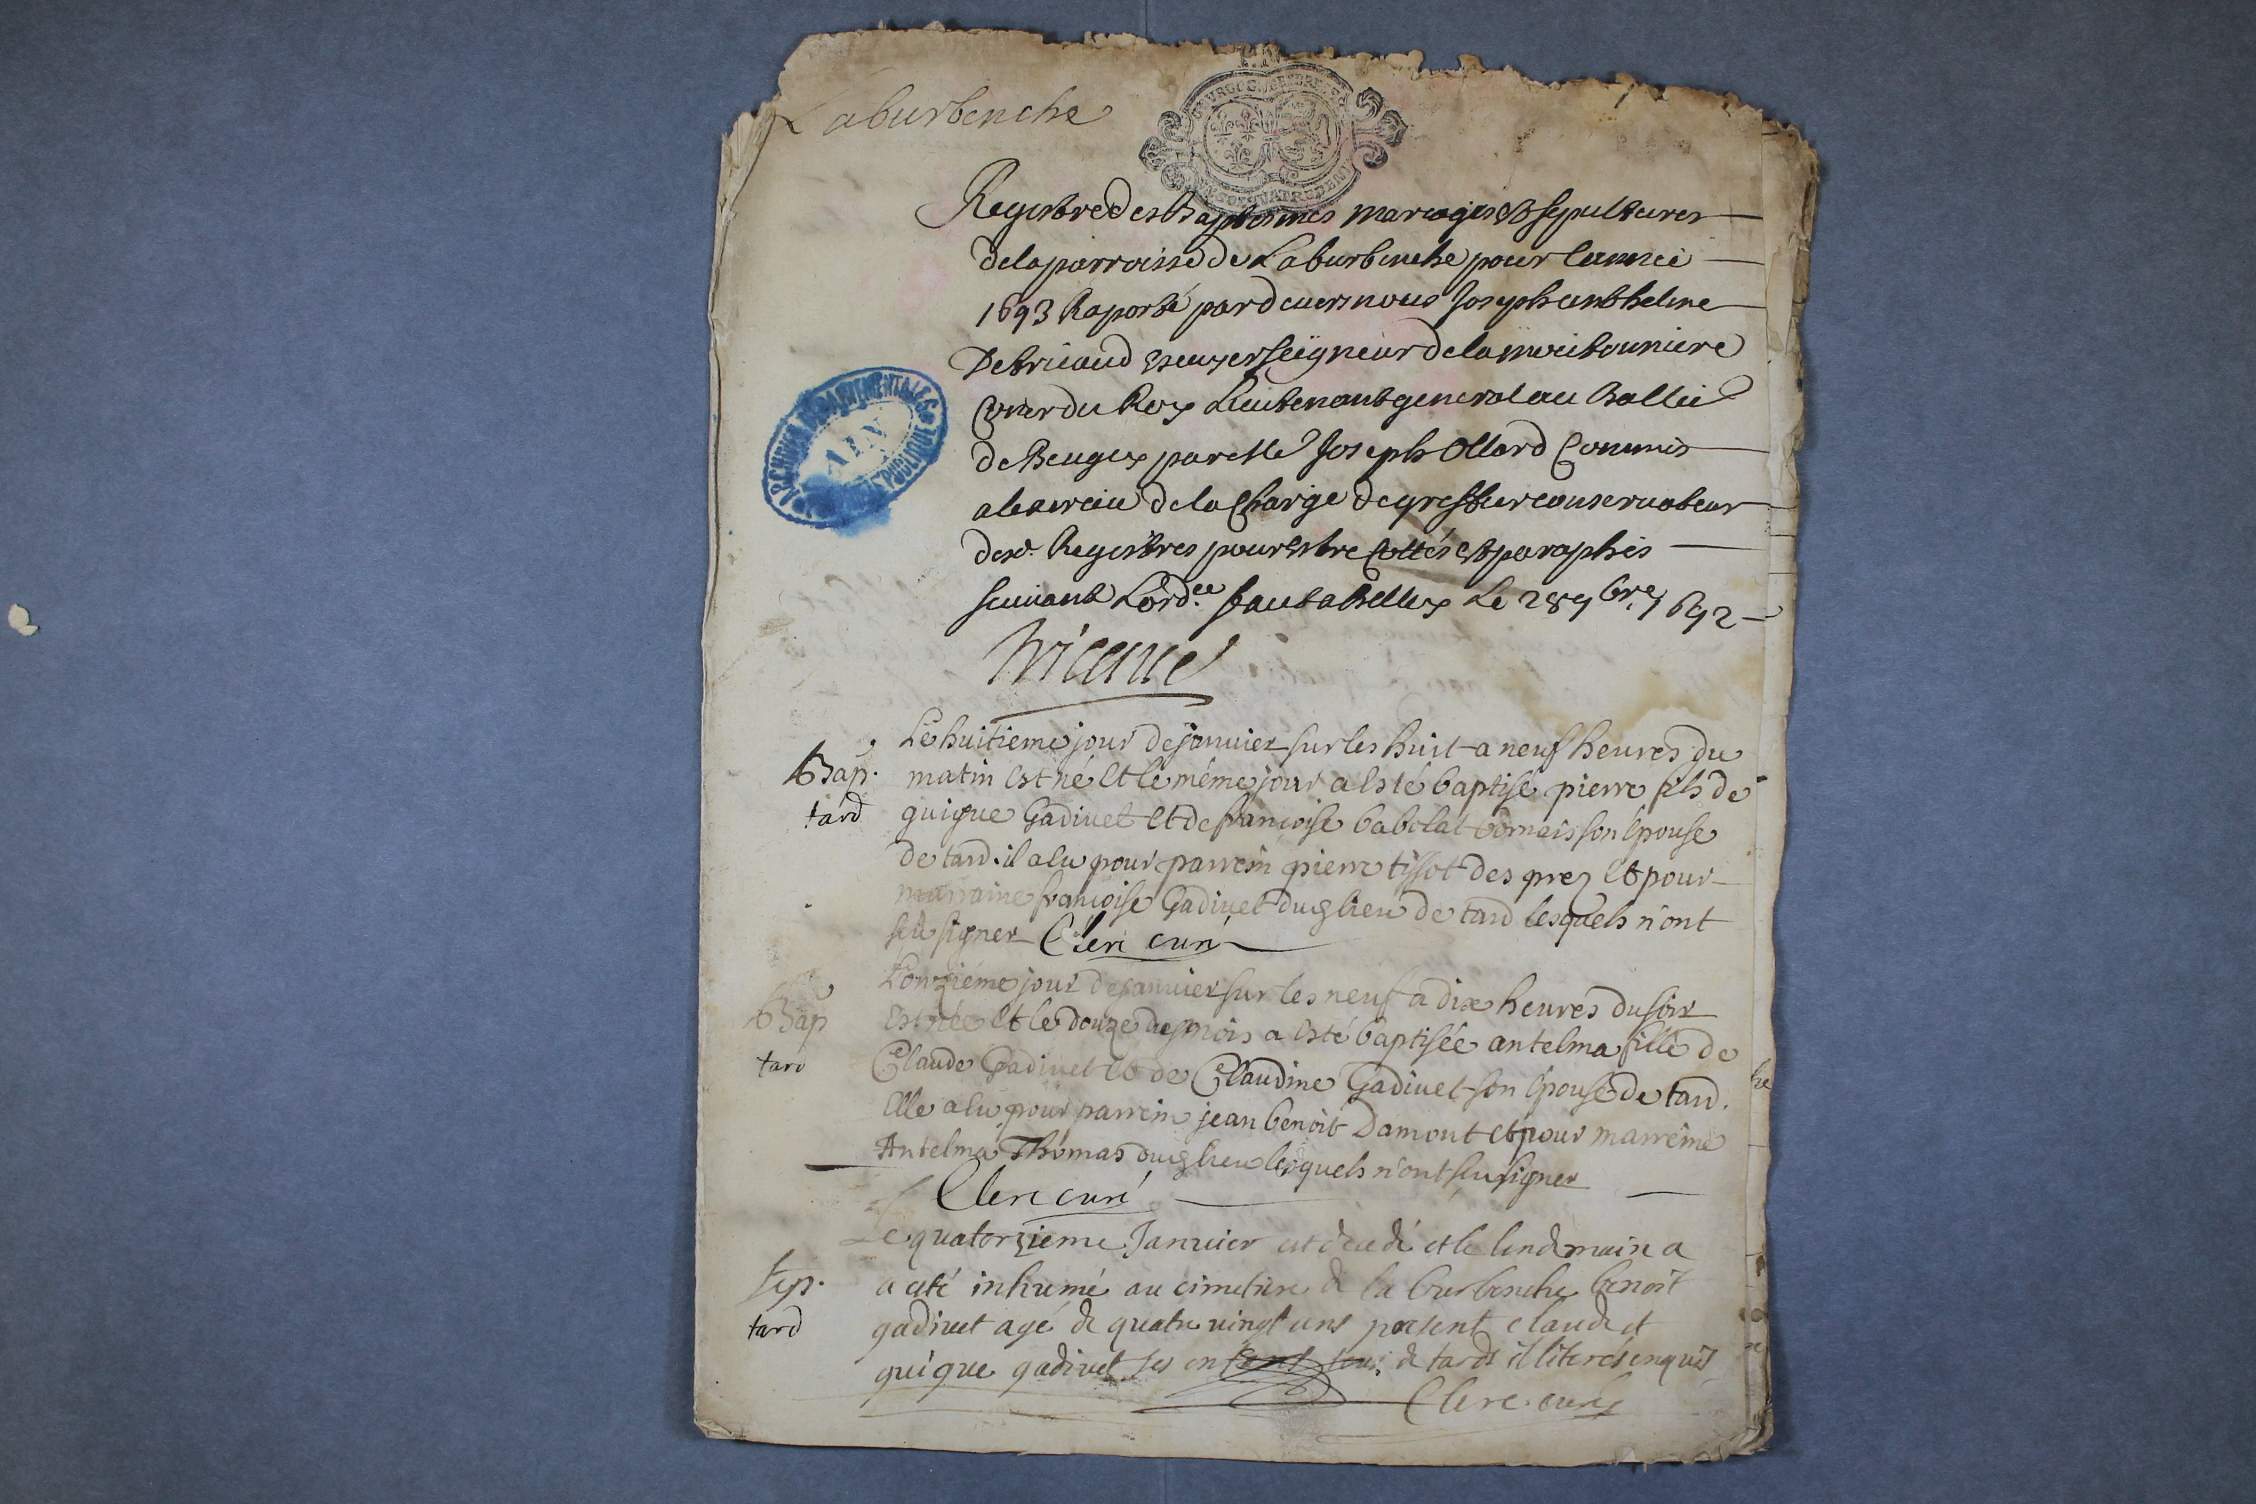 Laburbenche
Registre des Baptesmes mariages et sepultures
de la parroisse de Laburbenche pour lannée
1693 Raporté pardevers nous Joseph antheline
De tricaud escuyer seigneur de la
Conser du Roy Lieutenant general au Ballie
de Beugey par Me Joseph Ollard Commis
a lexercice de la Charge de greffier conservateur
desd. Registres pour estre Cottés et paraphés
suivant Lord.ce faict a Belley Le 28 9bre 1692
tricaud
ARCHIVES DEPARTEMENTALES
AIN
PUBLIQUE
Le huitieme jour de janvier sur les huit a neuf heures du
Bap. matin est né et le méme jour a esté baptisé pierre fils de
tard guigue Gadivet et de françoise babolat bornais son épouse
de tard. il a eu pour parrein pierre tissot des prez et pour
marraine françoise Gadivet dud lieu de tard lesquels n'ont
seu signer Clerc curé
L'onziéme jour de janvier sur les neuf a dix heures du soir
Bap est née et le douze du mois a esté baptisée antelma fille de
tard Claude Gadivet et de Claudine Gadivet son épouse de tard.
Elle a eu pour parrein jean benoit Damout et pour marreine
Antelma Thomas dud lieu lesquels n'ont seu signer
Clerc curé
Le quatorzieme Janvier est decedé et le lendemain a
Sep. a eté inhumé au cimetiere de la burbenche benoit
tard gadivet agé de quatre vingt ans present claude et
guigue gadivet ses enfans de tard illiterés enquis
Clerc curé